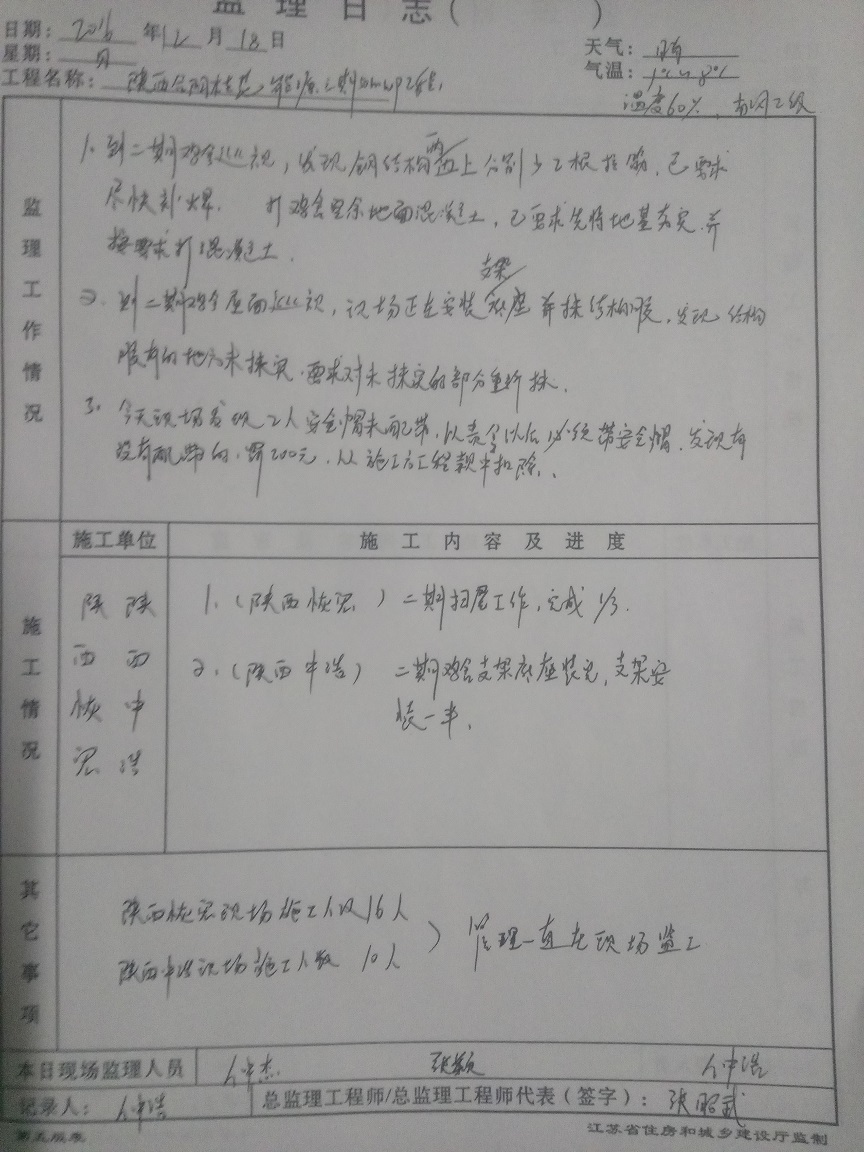 监理日志(      )
日期: 2016 年 12 月 18 日
天气: 晴
星期:
气温: 1℃~8℃
工程名称: 陕西合阳
湿度60%, 南风二级
监理工作情况
1. 到二期鸡舍巡视,发现钢结构两边上分别少2根拉筋,已要求
尽快补焊. 打鸡舍里余地面混凝土,已要求先将地基夯实,并
按要求打混凝土.
支架
2. 到二期鸡舍屋面巡视,现场正在安装底座并抹结构胶,发现结构
胶有的地方未抹实,要求对未抹实的部分重新抹.
3. 今天现场发现2人安全帽未配带,以责令以后必须带安全帽,发现有
没有配带的,罚200元,从施工方工程款中扣除.
施工单位 施工内容及进度
施工情况
陕西恢宏
陕西中浩
1. (陕西恢宏) 二期扫尾工作,完成1/3.
2. (陕西中浩) 二期鸡舍支架底座装完,支架安
装一半.
其它事项
陕西恢宏现场施工人数16人
陕西中浩现场施工人数 10人
) 监理一直在现场监工
本日现场监理人员
记录人:
总监理工程师/总监理工程师代表(签字): 张昭武
第五版表
江苏省住房和城乡建设厅监制